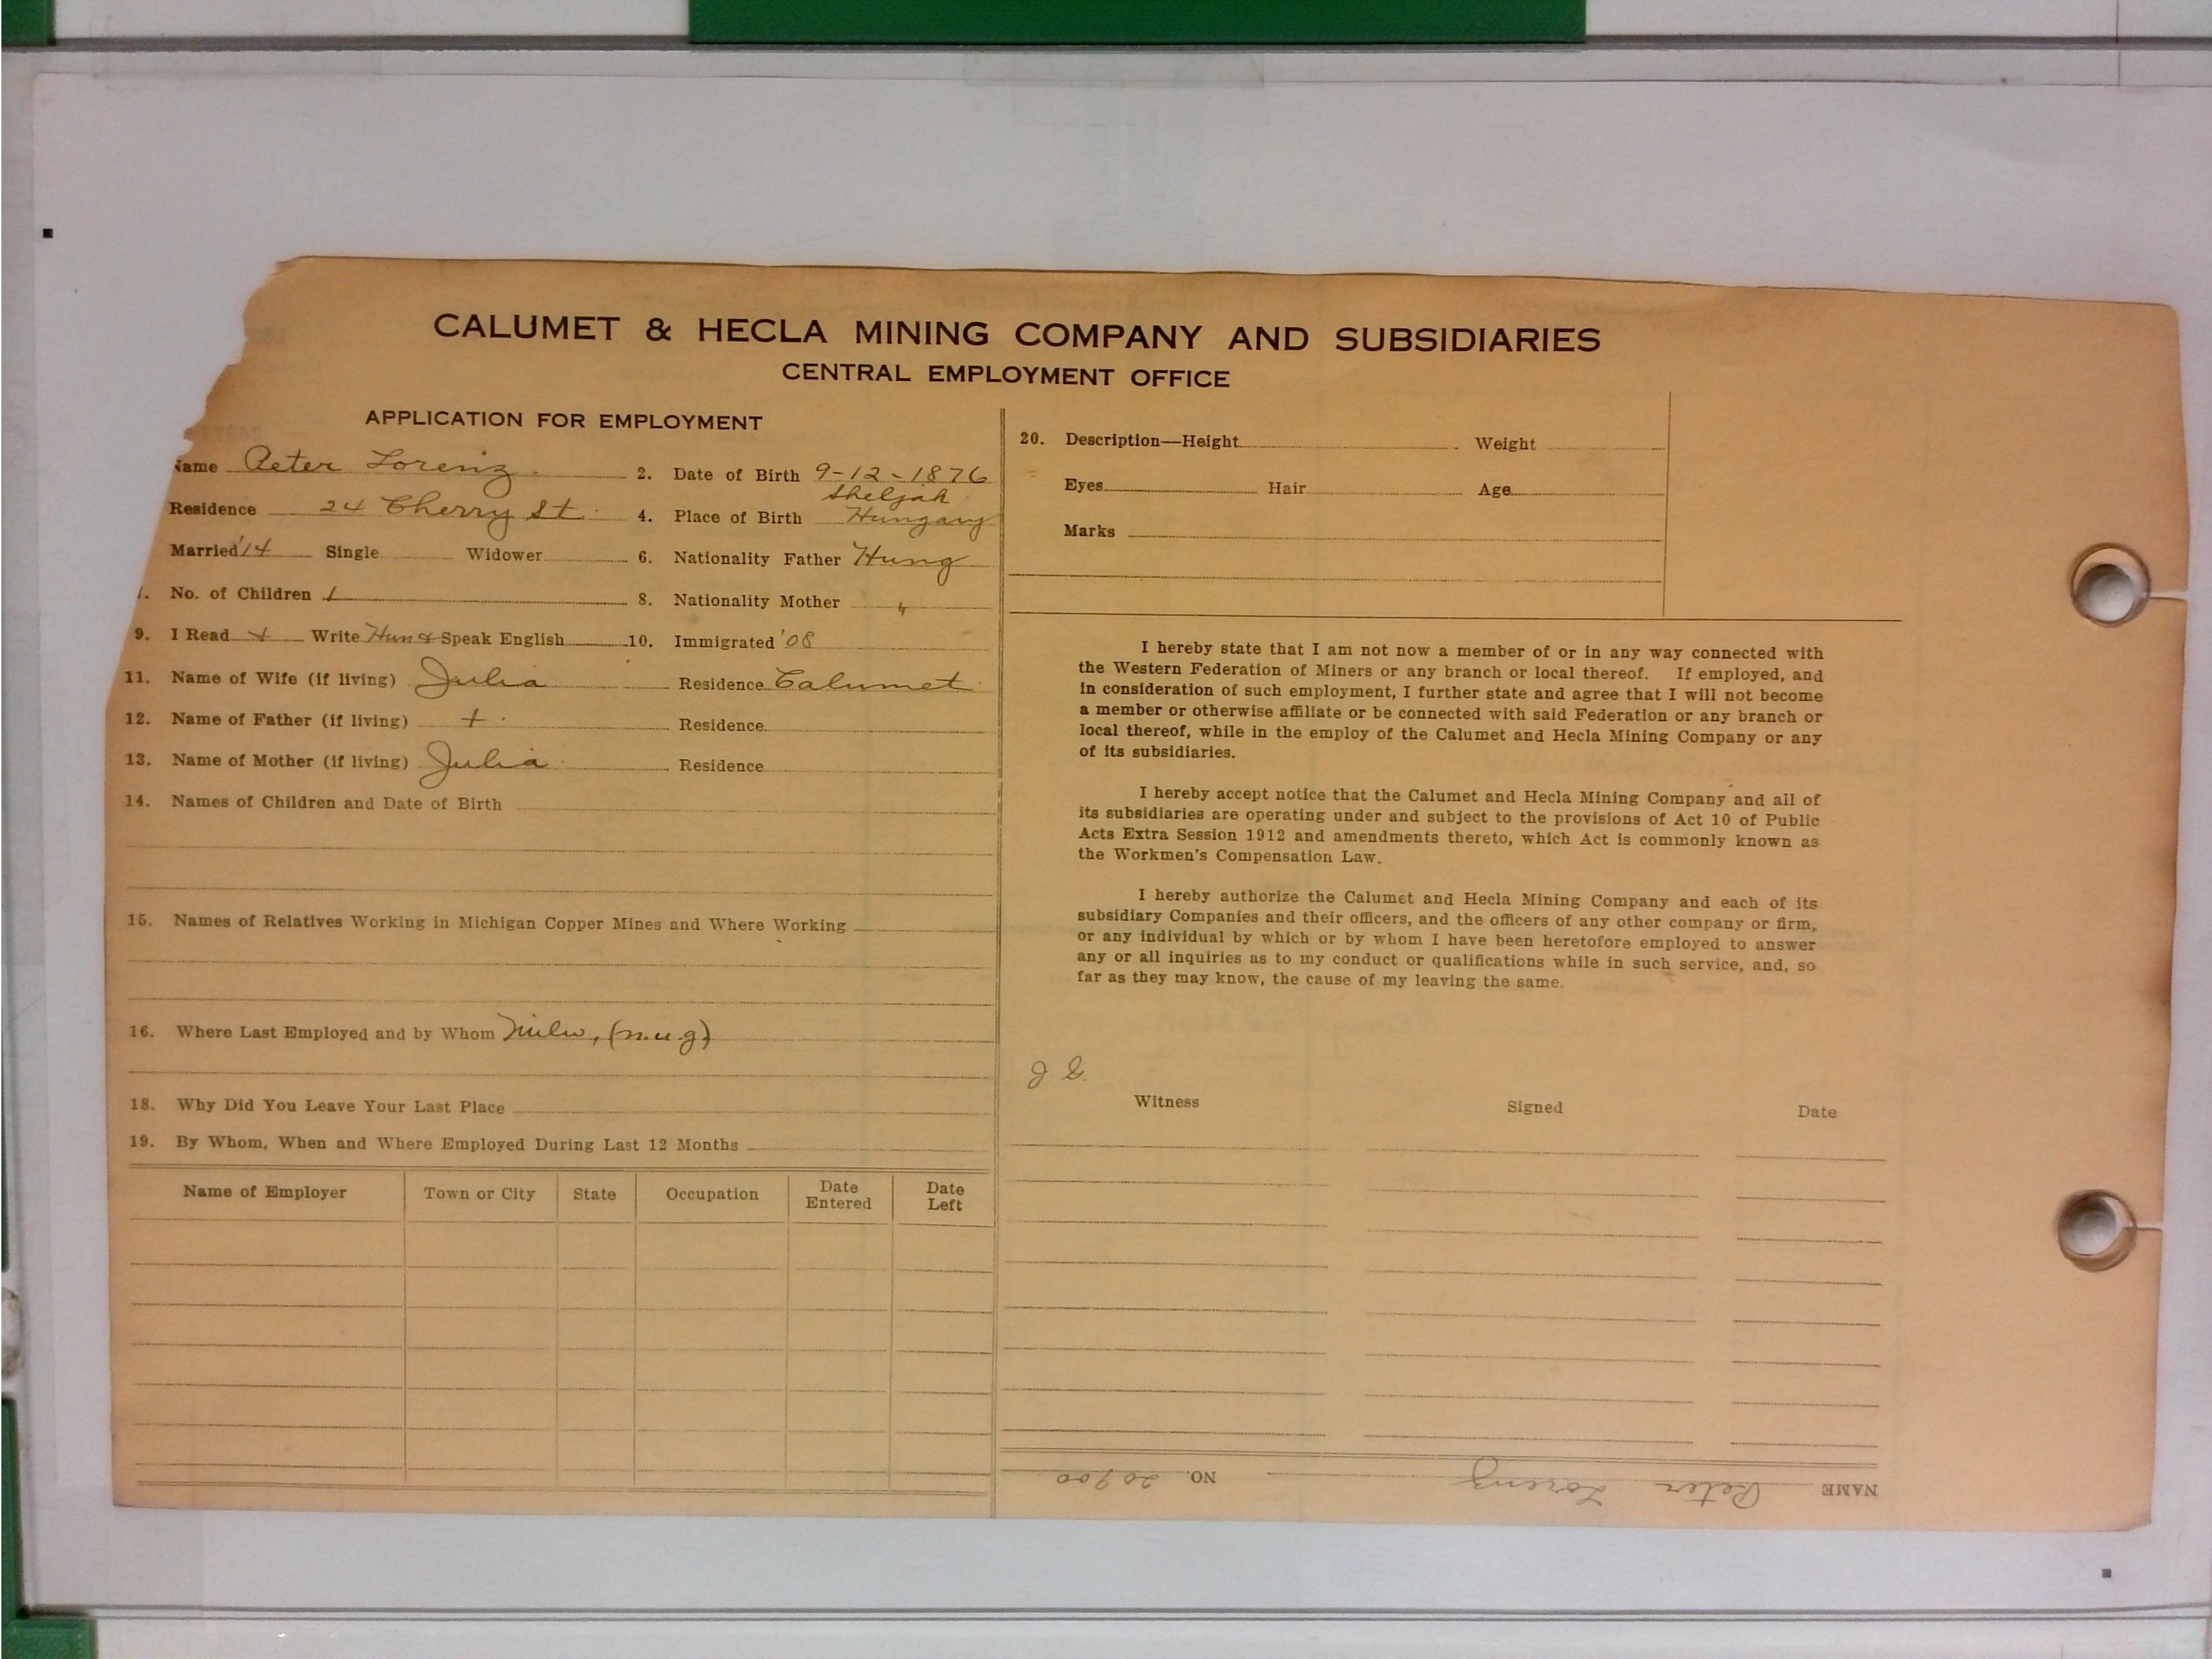 CALUMET & HECLA MINING COMPANY AND SUBSIDIARIES
CENTRAL EMPLOYMENT OFFICE
APPLICATION FOR EMPLOYMENT
Name Peter Lorenz 2. Date of Birth 9-12-1876
Residence 24 Cherry St. 4. Place of Birth Hungary
Married '14 Single Widower 6. Nationality Father Hung
7. No. of Children 1 8. Nationality Mother "
9. I Read + Write Hun & Speak English 10. Immigrated '08
11. Name of Wife (if living) Julia Residence Calumet
12. Name of Father (if living) + Residence
13. Name of Mother (if living) Julia Residence
14. Names of Children and Date of Birth
15. Names of Relatives Working in Michigan Copper Mines and Where Working
16. Where Last Employed and by Whom Milw, (n.u.g)
18. Why Did You Leave Your Last Place
19. By Whom, When and Where Employed During Last 12 Months
Name of Employer Town or City State Occupation Date Entered Date Left
20. Description—Height Weight
Eyes Hair Age
Marks
I hereby state that I am not now a member of or in any way connected with
the Western Federation of Miners or any branch or local thereof. If employed, and
in consideration of such employment, I further state and agree that I will not become
a member or otherwise affiliate or be connected with said Federation or any branch or
local thereof, while in the employ of the Calumet and Hecla Mining Company or any
of its subsidiaries.
I hereby accept notice that the Calumet and Hecla Mining Company and all of
its subsidiaries are operating under and subject to the provisions of Act 10 of Public
Acts Extra Session 1912 and amendments thereto, which Act is commonly known as
the Workmen's Compensation Law.
I hereby authorize the Calumet and Hecla Mining Company and each of its
subsidiary Companies and their officers, and the officers of any other company or firm,
or any individual by which or by whom I have been heretofore employed to answer
any or all inquiries as to my conduct or qualifications while in such service, and, so
far as they may know, the cause of my leaving the same.
Witness Signed Date
NAME Peter Lorenz NO. 20900